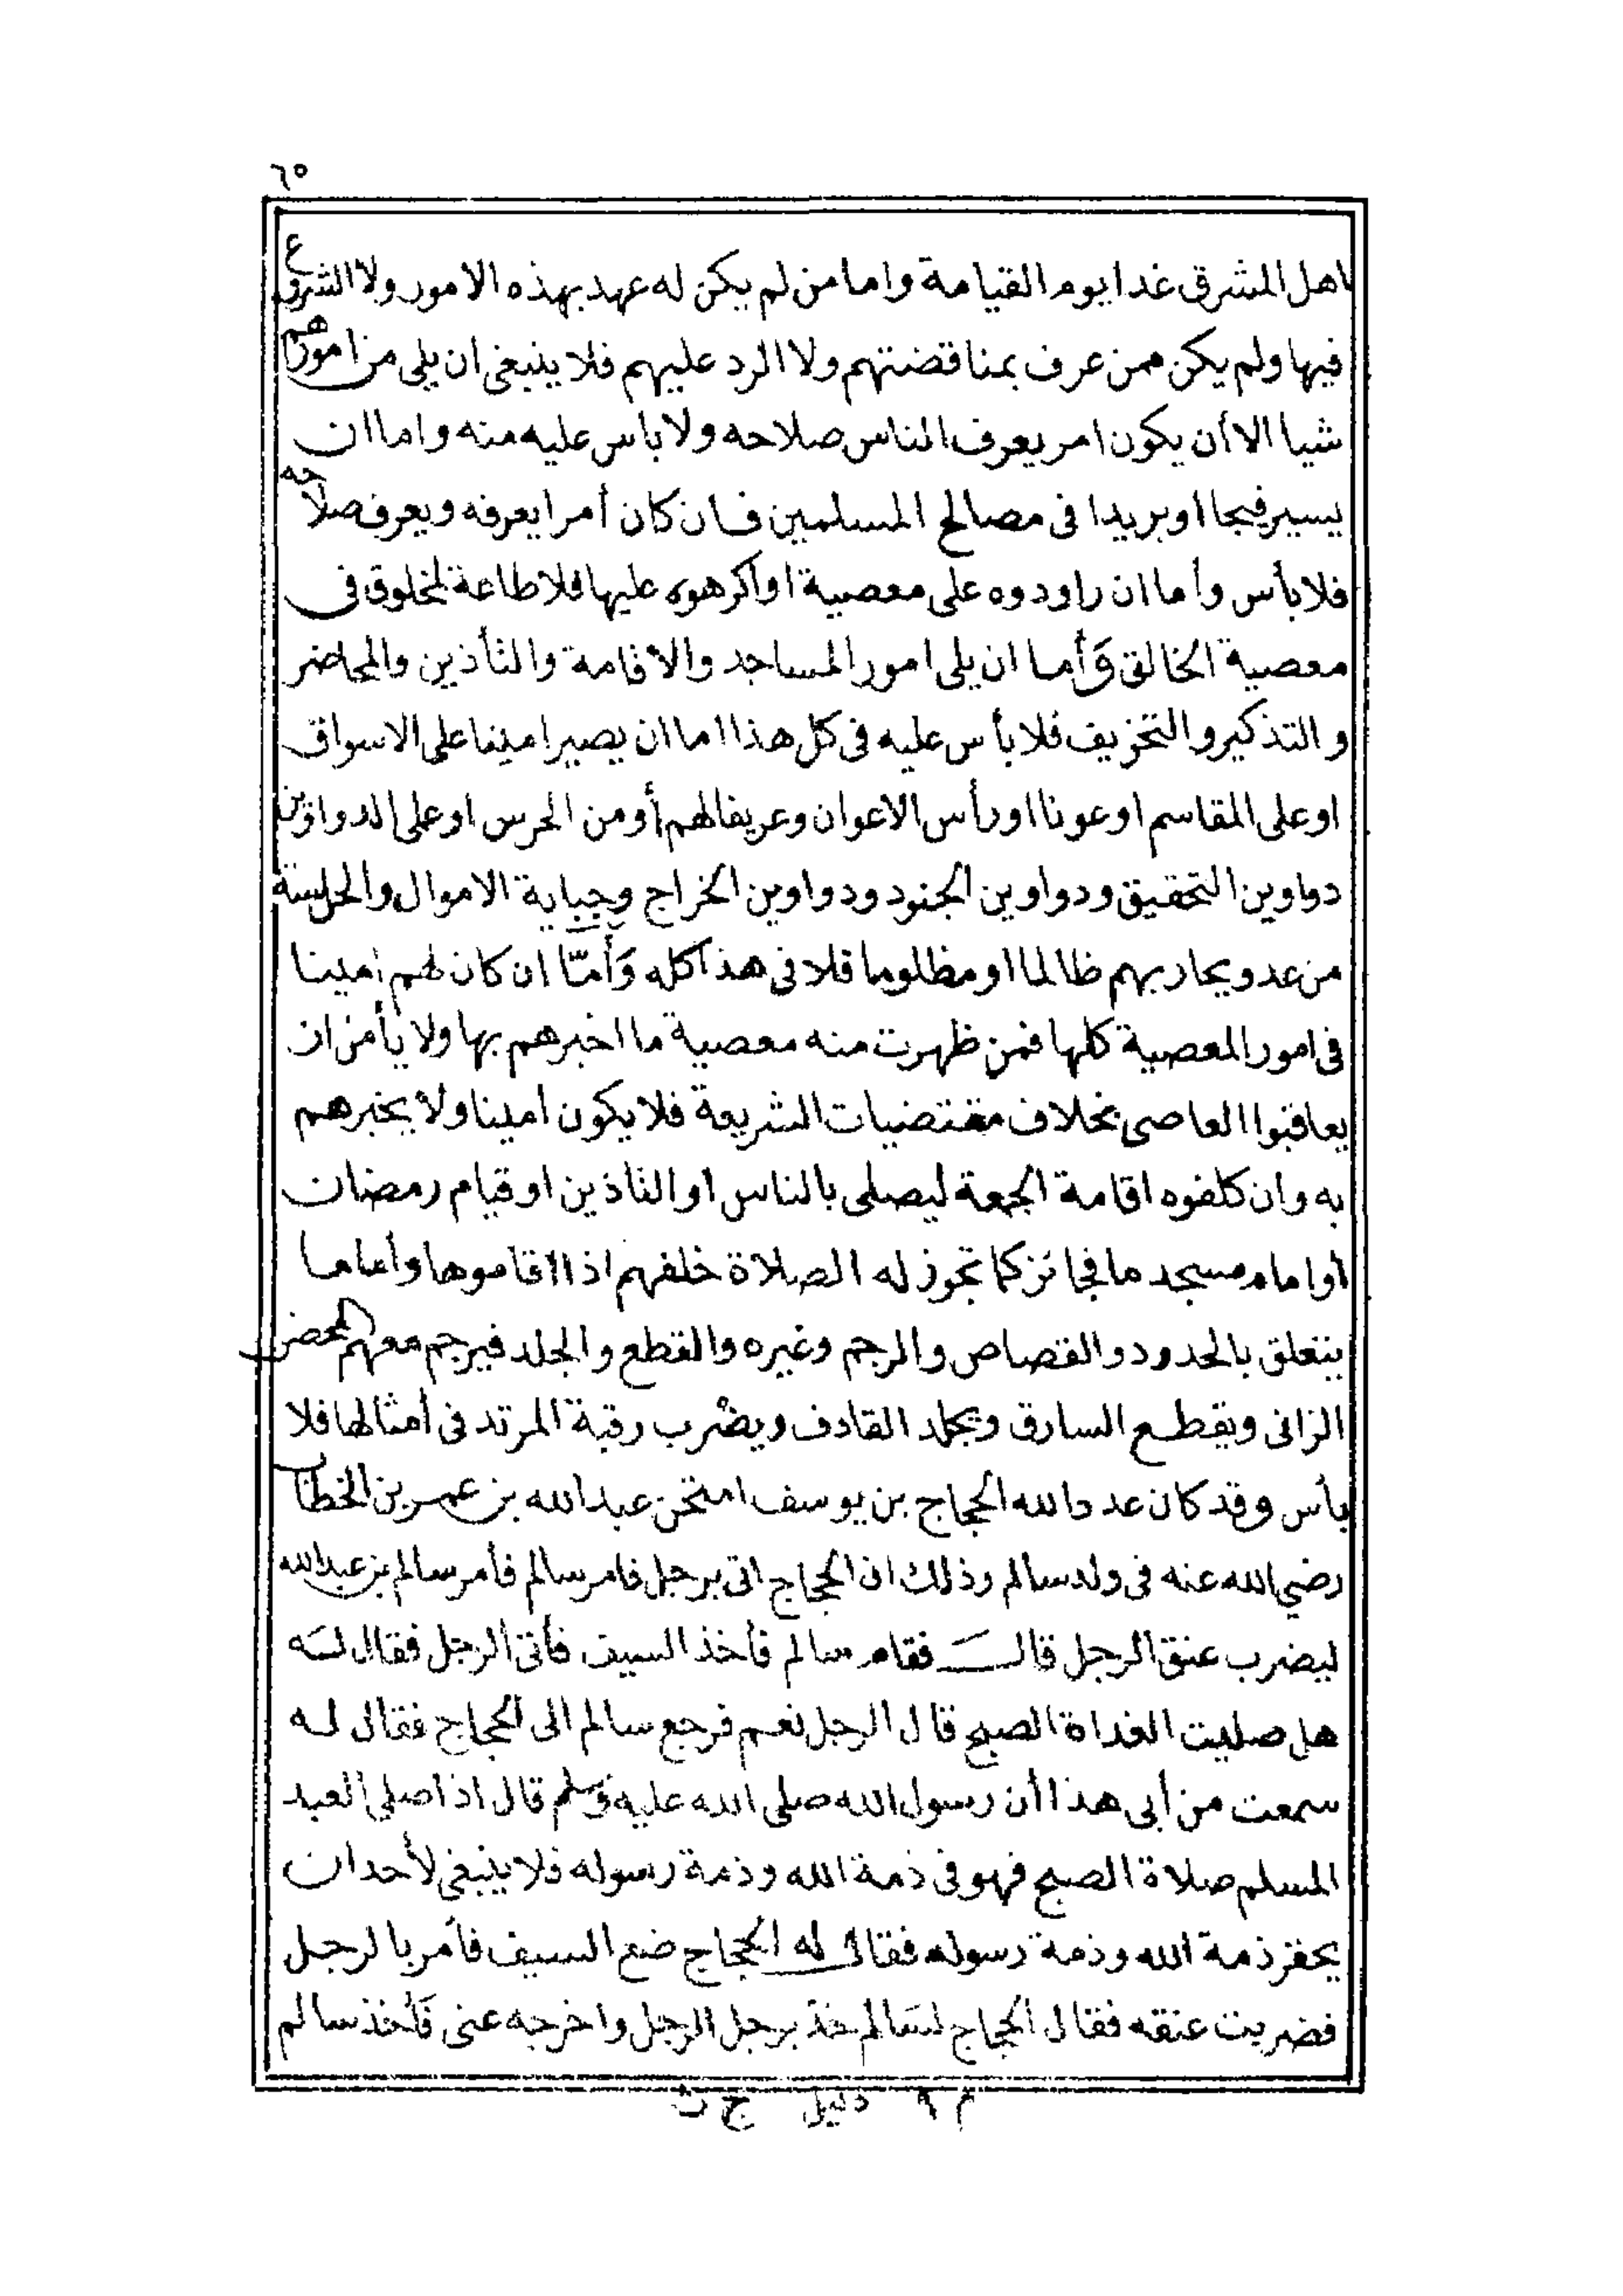 ٦٥
اهل المشرق غدا يوم القيامة واما من لم يكن له عهد بهذه الامور ولا الشروع
فيها ولم يكن ممن عرف بمناقضتهم ولا الرد عليهم فلا ينبغى ان يلى من امورهم
شيا الا أن يكون امر يعرف الناس صلاحه ولا باس عليه منه واما ان
يسير فيجا او بريدا فى مصالح المسلمين فان كان أمرا يعرفه ويعرف صلاحه
فلا بأس وأما ان راودوه على معصية او اكرهوه عليها فلا طاعة لمخلوق فى
معصية الخالق وَأما ان يلى امور المساجد والاقامة والتأذين والمحاضر
والتذكير والتخزيف فلا بأس عليه فى كل هذا اما ان يصير امينا على الاسواق
او على المقاسم او عونا او رأس الاعوان وعريفا لهم أو من الحرس او على الدواوين
دواوين التحقيق ودواوين الجنود ودواوين الخراج وجباية الاموال والجلسة
من عدو يحاربهم ظالما او مظلوما فلا فى هذا كله وَأمّا ان كان لهم امينا
فى امور المعصية كلها فمن ظهرت منه معصية ما اخبرهم بها ولا يأمن ان
يعاقبوا العاصى بخلاف مقتضيات الشريعة فلا يكون امينا ولا يخبرهم
به وان كلفوه اقامة الجمعة ليصلى بالناس او التاذين او قيام رمضان
أو امام مسجد ما فجائز كما تجوز له الصلاة خلفهم اذا اقاموها وأما ما
يتعلق بالحدود والقصاص والرجم وغيره والقطع والجلد فيرجم معهم المحضن
الزانى ويقطع السارق ويجلد القادف ويضرب رقبة المرتد فى أمثالها فلا
بأس وقد كان عدد الله الحجاج بن يوسف امتحن عبد الله بن عمر بن الخطاب
رضي الله عنه فى ولد سالم وذلك ان الحجاج اتى برجل فامر سالم فأمر سالم بن عبد الله
ليضرب عنق الرجل قال فقام سالم فأخذ السيف فأتى الرجل فقال له
هل صليت الغداة الصبح قال الرجل نعم فرجع سالم الى الحجاج فقال له
سمعت من أبى هذا أن رسول الله صلى الله عليه وسلم قال اذا صلى العبد
المسلم صلاة الصبح فهو فى ذمة الله وذمة رسوله فلا ينبغى لأحد ان
يحفز ذمة الله وذمة رسوله فقال له الحجاج ضع السيف فأمر بالرجل
فضربت عنقه فقال الحجاج لسالم خذ برجل الرجل واخرجه عنى فأخذ سالم
م ٩ دليل ج ث